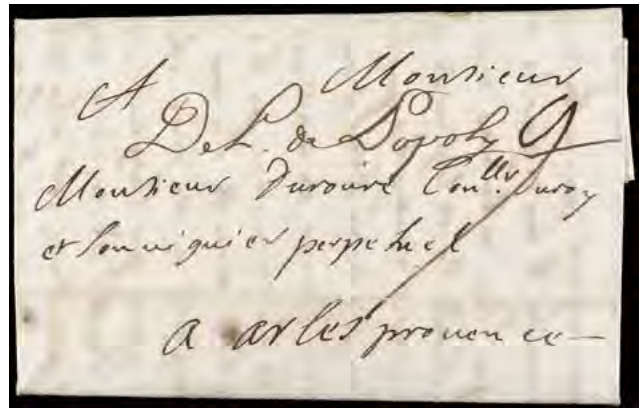 A Monsieur
De L. de Popoly 9
Monsieur Duroure Con.llr duroy
et son viguier perpetuel
a arles provence